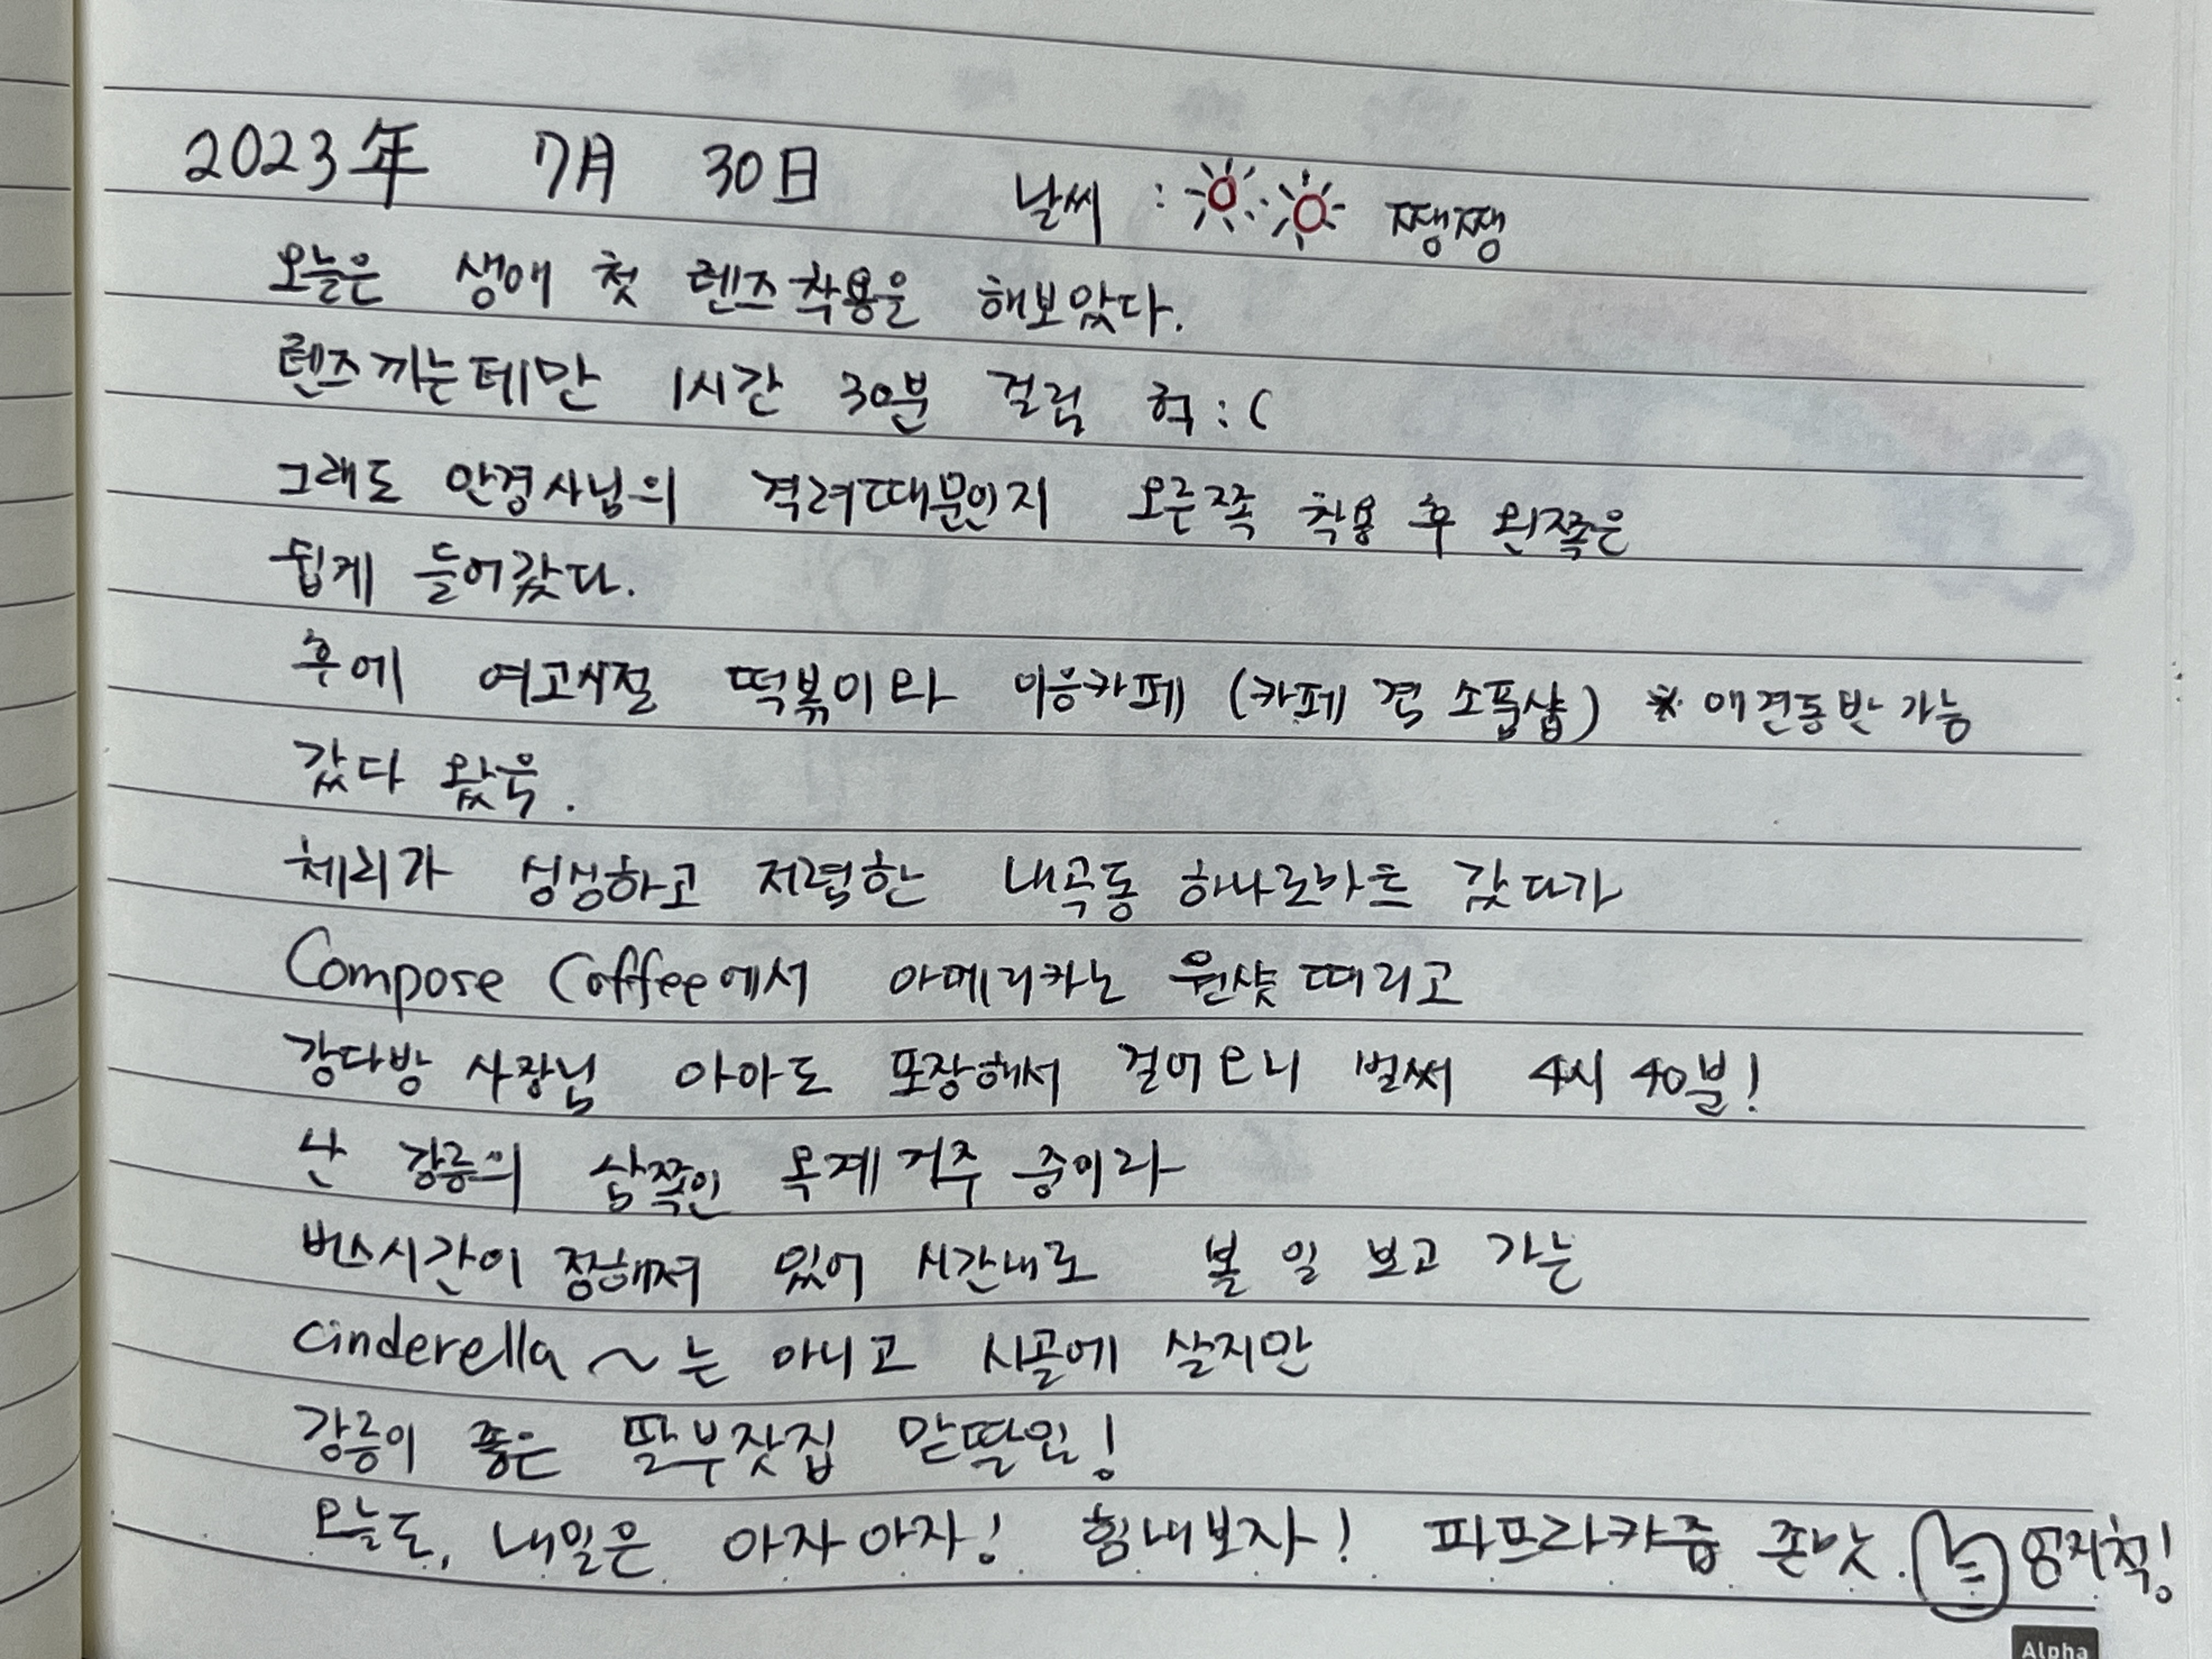 2023年 7月 30日 날씨 : 쨍쨍
오늘은 생애 첫 렌즈착용을 해보았다.
렌즈끼는데만 1시간 30분 걸림 헉:(
그래도 안경사님의 격려때문인지 오른쪽 착용 후 왼쪽은
쉽게 들어갔다.
후에 여고시절 떡볶이와 이응카페 (카페 겸 소품샵) * 애견동반 가능
갔다 왔우.
체리가 싱싱하고 저렴한 내곡동 하나로마트 갔다가
Compose Coffee에서 아메리카노 원샷 때리고
강다방 사장님 아아도 포장해서 걸어오니 벌써 4시 40분!
난 강릉의 삼쪽인 옥계거주 중이라
버스시간이 정해져 있어 시간내로 볼 일 보고 가는
cinderella ~ 는 아니고 시골에 살지만
강릉이 좋은 딸부잣집 맏딸임!
오늘도, 내일은 아자아자! 힘내보자! 파프리카즙 존맛. 엄지척!
Alpha